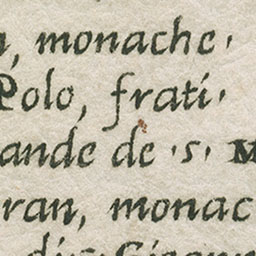 , monache·
Polo, frati·
ande de ·s· M
ran, monac